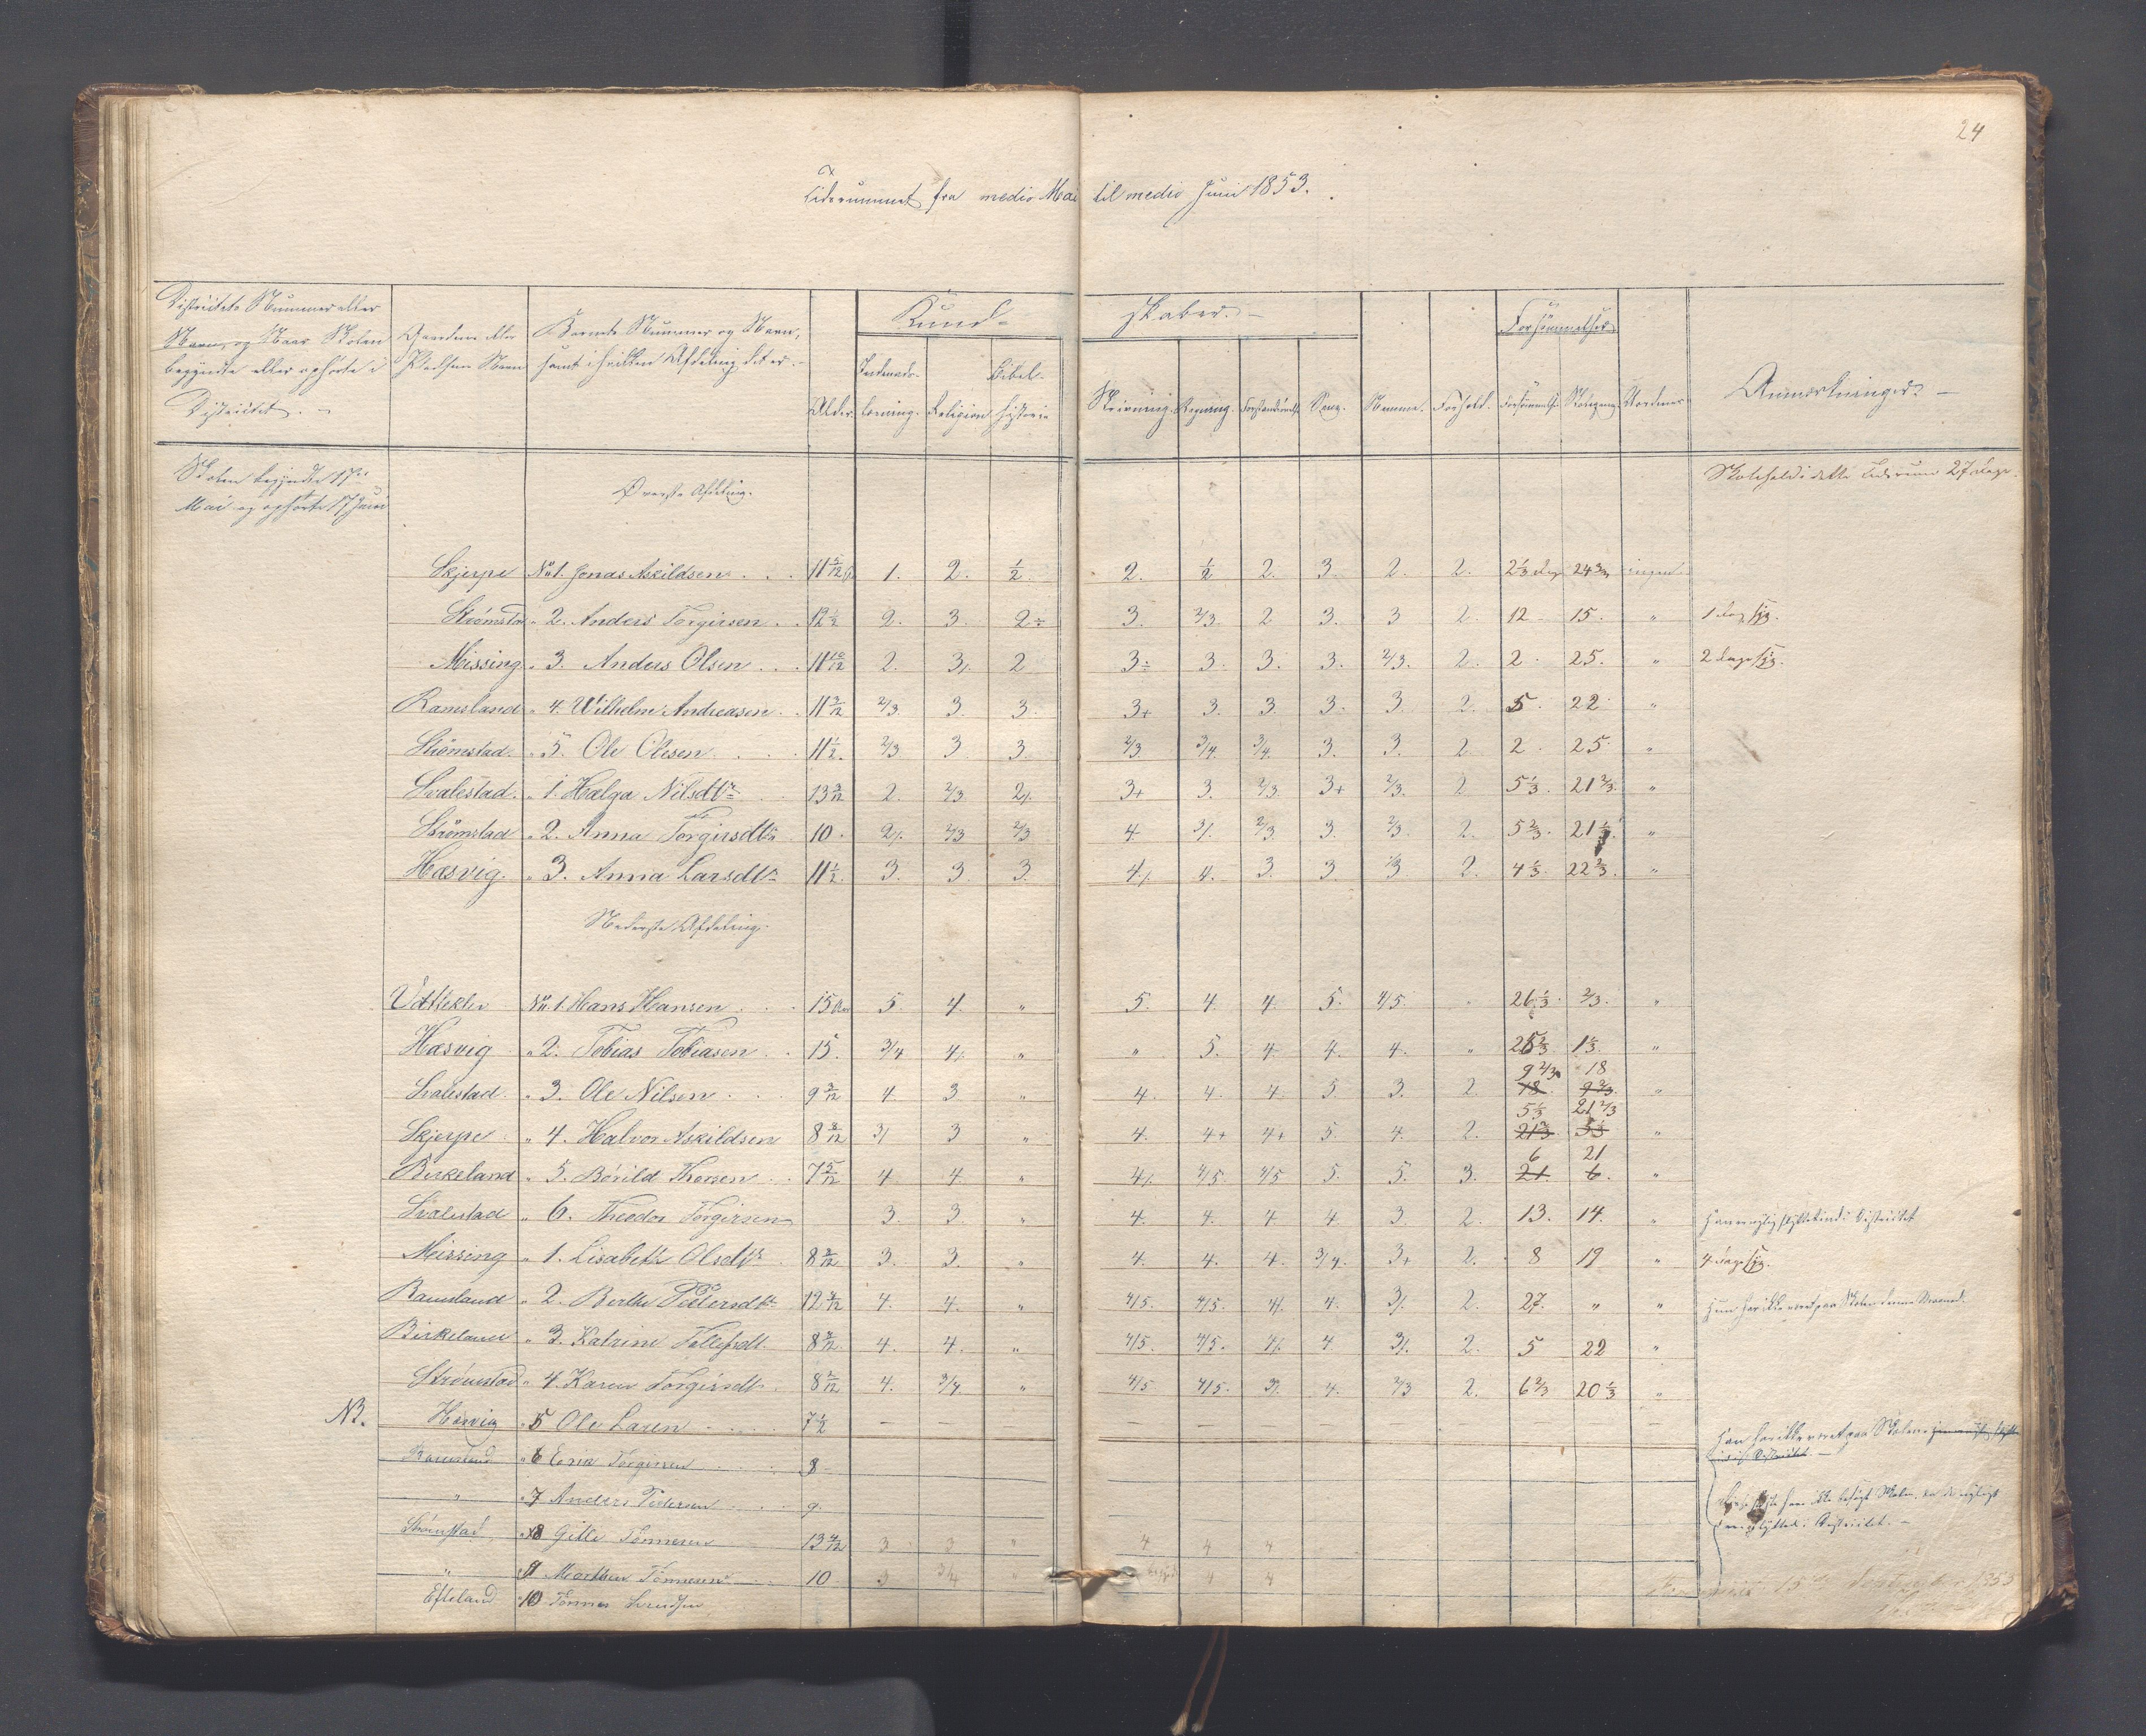 24
Tidsrummet fra medio Mai til medio Juni 1853.
Districtets Nummer eller Navn, og Naar Skolen begyndte eller ophørte i Districtet. –
Gaardens eller Pladsens Navn
Barnets Nummer og Navn, samt i hvilken Afdeling det er. –
Alder.
Kund- skaber. –
Indenads-læsning. Religion Bibel-historie
Skrivning. Regning. Forstandsøvelse Sang. Nemme. Forhold.
Forsømmelser
Forsømmelse. Skolegang. Anmærkninger. –
Skolen begyndte 17de Mai og ophørte 17 Juni
Øverste Afdeling.
Skolehold i dette Tidsrum 27 Dage.
Skjerpe No 1. Jonas Askildsen . . . 11 5/12 1. 2. 1/2 2. 1/2 2. 3. 2. 2. 2 1/3 Dag 24 2/3 ingen
Strømstad " 2. Anders Torgirsen . . 12 1/2 2. 3. 2÷ 3. 2/3. 2 3. 3 2. 12 15. " 1 Dag syg.
Missing " 3. Anders Olsen . . . 11 10/12 2. 3/. 2 3÷ 3. 3. 3. 2/3. 2. 2. 25. " 2 Dage syg.
Ramsland " 4. Wilhelm Andreasen . . 11 3/12 2/3. 3. 3. 3+ 3. 3. 3. 3. 2. 5. 22 "
Strømstad. " 5. Ole Olesen . . . 11 1/2. 2/3 3 3. 2/3. 3/4. 3/4. 3. 3. 2 2. 25. "
Svalestad. " 1. Hælga Nilsdtr . . 13 3/12 2. 2/3. 2/. 3+ 3. 2/3. 3+ 2/3. 2 5 1/3. 21 2/3. "
Strømstad " 2. Anna Torgirsdtr 10. 2/. 2/3 2/3 4. 3/. 2/3. 3. 2/3. 2. 5 2/3. 21 1/3. "
Hæsvig. " 3. Anna Larsdtr 11 1/2. 3. 3. 3. 4/. 4. 3. 3. 3. 2. 4 1/3. 22 2/3. "
Nederste Afdeling.
No 1. Hans Hansen . . . 15 Aar 5. 4. " 5. 4. 4. 5. 4/5. " 26 1/3. 2/3. "
Hæsvig " 2. Tobias Tobiasen . . 15. 3/4 4/. " " 5. 4. 4. 4. " 25 2/3. 1 1/3. "
Svalestad. " 3. Ole Nilsen . . . 9 3/12 4. 3 " 4. 4. 4. 5. 3. 2. 9 2/3 18 "
Skjerpe " 4. Halvor Askildsen 8 8/12 3/ 3 " 4. 4+ 4+ 5. 4. 2. 5 1/3 21 2/3 "
Birkeland " 5. Bårild Thorsen . . 7 5/12 4 4. " 4/. 4/5. 4/5 5. 5. 3. 6 21 "
Svalestad " 6. Theodor Torgirsen 3. 3. " 4. 4. 4 4. 3. 2. 13. 14. " Han nylig flyttet ind i Districtet
Missing " 1. Lisabeth Olsdtr . 8 8/12 3. 3. " 4. 4. 4. 3/4. 3+ 2. 8 19 " 4 Dage syg.
Ramsland " 2. Berthe Pedersdtr 12 4/12 4. 4. " 4/5. 4/5. 4/. 4. 3/. 2. 27. " " Hun har ikke været paa Skolen denne Maaned.
Birkeland " 3. Katrine Tollefsdt. 8 8/12 4. 4. " 4/5. 4/5. 4/. 4 3/. 2. 5 22 "
Strømstad " 4. Karen Torgirsdt. 8 2/12 4. 3/4 " 4/5 4/5. 3/. 4. 2/3 2. 6 2/3 20 1/3 "
NB. Hæsvig " 5 Ole Larsen . . . 7 1/2 — — — — — — — — — — —
Han har ikke været paa Skolen
Ramsland " 6 Torgirsen . . . 8
" " 7 Anders Pedersen . . . 9.
Disse sidste have ikke besøgt Skolen, da de nyligt ere flyttede i Districtet. –
Strømstad " 8 Gitle Tønnesen 13 4/12 3 3 " 4 4 4
" 9 Marthin Tønnesen 10 3 3/4 4 4
Efteland 10 Tønnes
15de September 1853